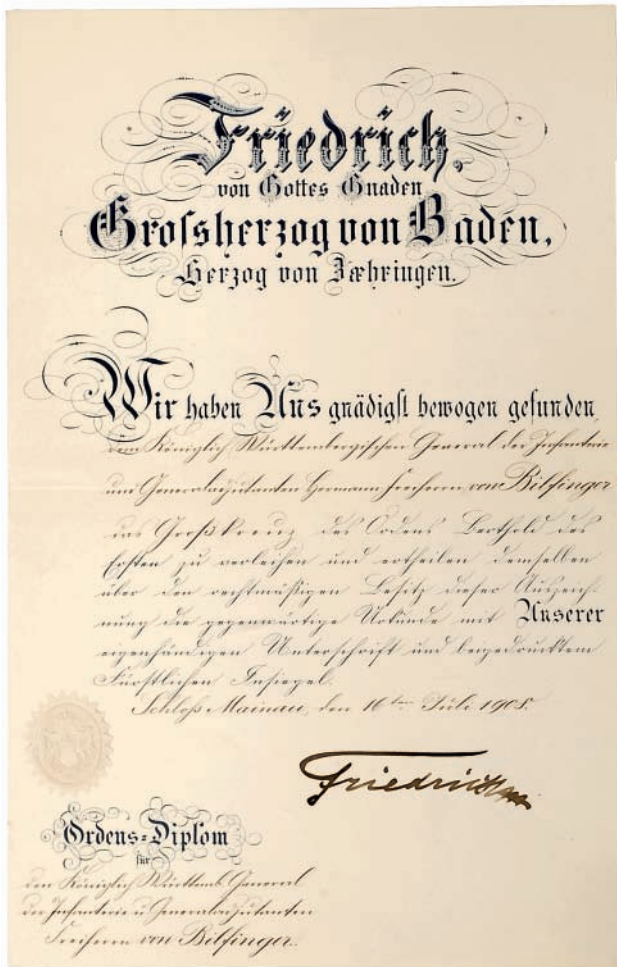 Friedrich,
von Gottes Gnaden
Grossherzog von Baden,
Herzog von Zæhringen.
Wir haben Uns gnädigst bewogen gefunden,
dem Königlich Württembergischen General der Infanterie
und Generaladjutanten Hermann Freiherrn von Bilfinger
das Großkreuz des Ordens Berthold des
Ersten zu verleihen und ertheilen demselben
über den rechtmäßigen Besitz dieser Auszeich-
nung die gegenwärtige Urkunde mit Unserer
eigenhändigen Unterschrift und beigedrucktem
Fürstlichen Insiegel.
Schloß Mainau, den 16ten Juli 1905.
Friedrich
Ordens-Diplom
für
den Königlich Württemb. General
der Infanterie u. Generaladjutanten
Freiherrn von Bilfinger.